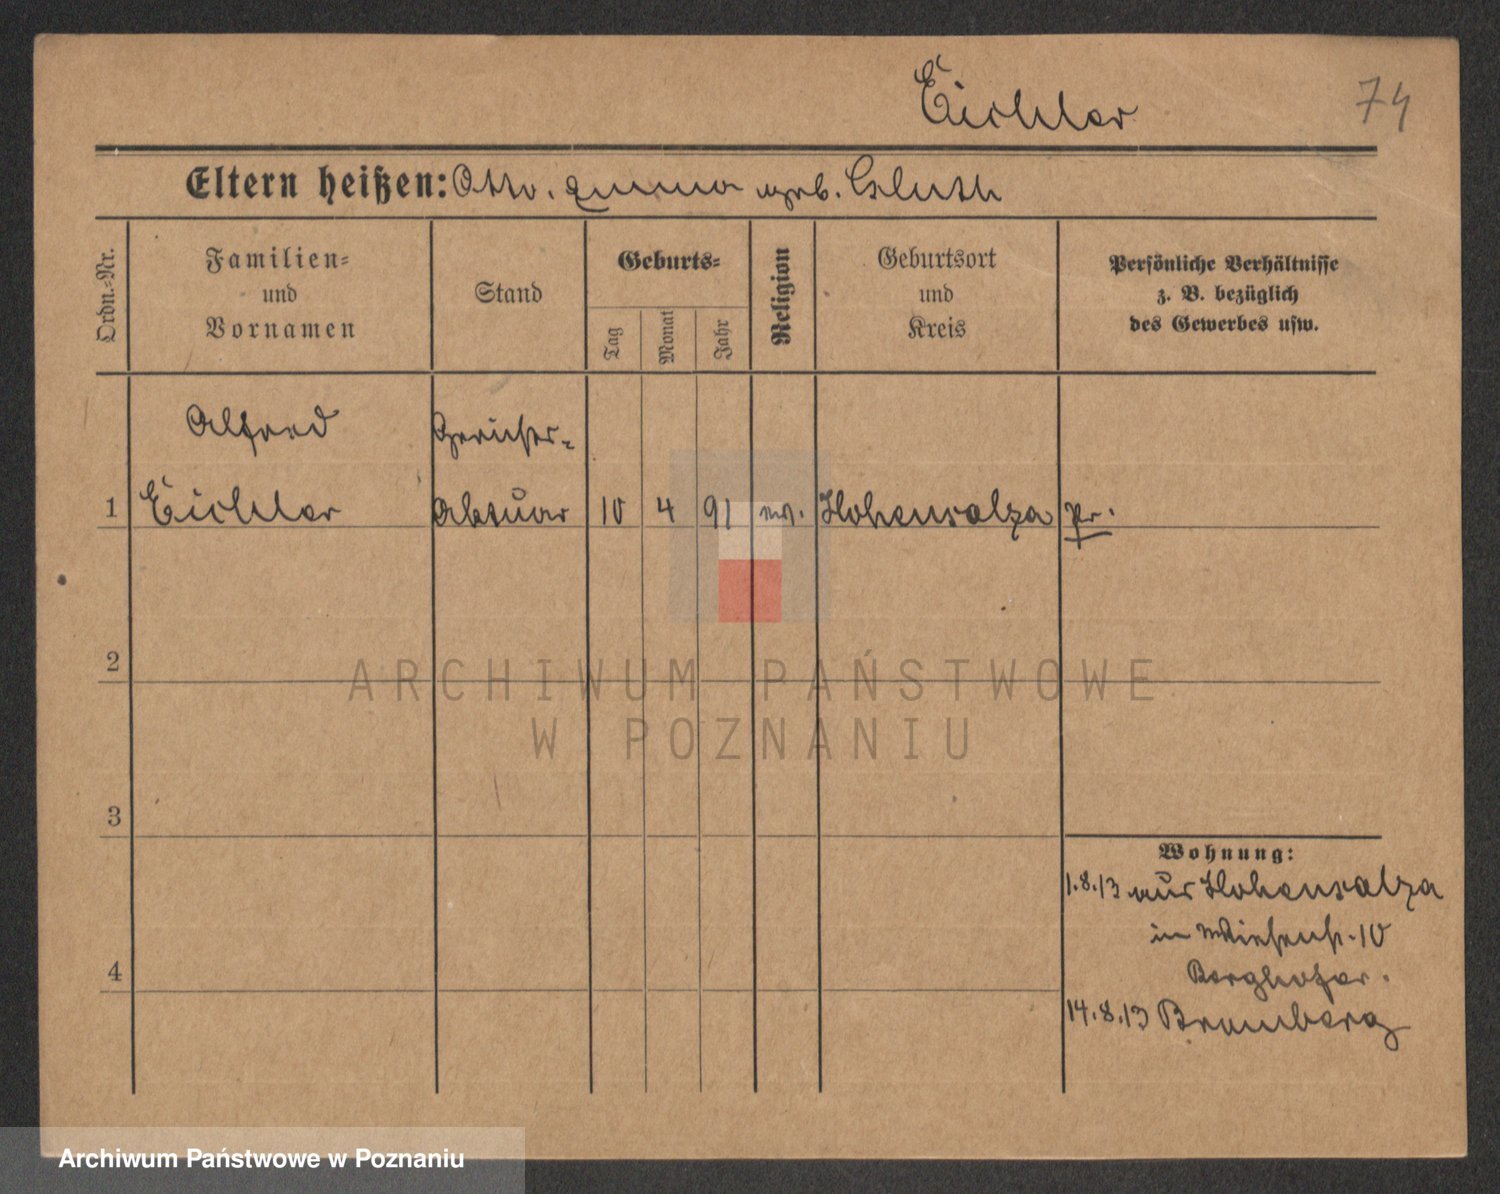 Eichler
74
Eltern heißen: Otto. Emma geb. Gluth
Ordn.-Nr.
Familien-
und
Vornamen
Stand
Geburts-
Tag
Monat
Jahr
Religion
Geburtsort
und
Kreis
Persönliche Verhältnisse
z. B. bezüglich
des Gewerbes usw.
Alfred
Gerichts-
1 Eichler Aktuar 10 4 91 ev. Hohensalza Pr.
2
3
4
Wohnung:
1.8.13 aus Hohensalza
in Wiesenstr. 10
14.8.13 Bromberg
ARCHIWUM PAŃSTWOWE
W POZNANIU
Archiwum Państwowe w Poznaniu